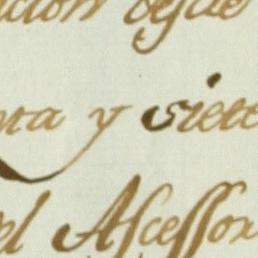 cion desde
nta y siete
el Ascessor